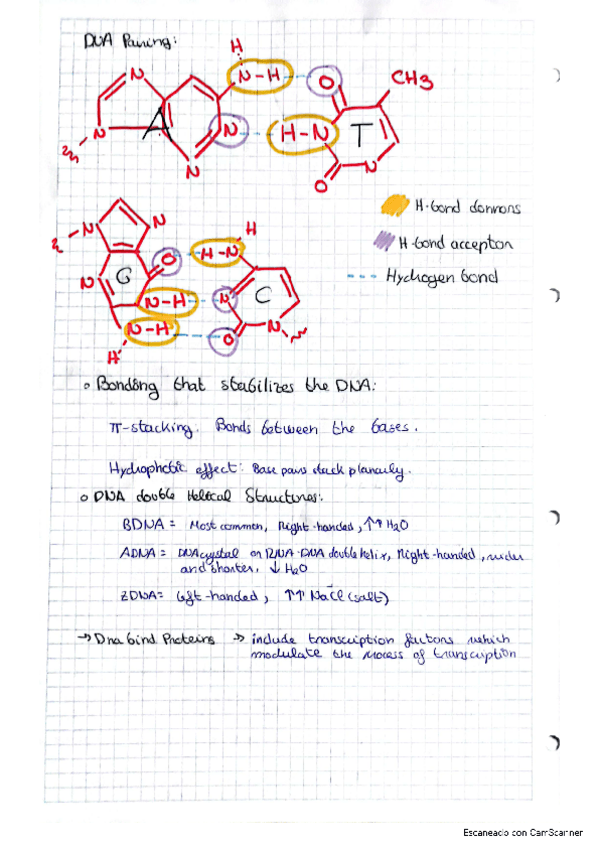 DNA Pairing:
H
N-H
O
CH3
N
A
N
N
H-N
T
N
O
N
H
N
N
O
H-N
G
N
N-H
N
C
N-H
O
N
H
H-bond donnors
H-bond acceptor
Hydrogen bond
Bonding that stabilizes the DNA:
π-stacking. Bonds between the bases.
Hydrophobic effect: Base pairs stack planarly.
DNA double Helical Structures:
BDNA = Most common, Right-handed, ↑↑ H2O
ADNA = DNA crystal or RNA-DNA double helix, Right-handed, wider
and shorter. ↓ H2O
ZDNA= left-handed, ↑↑ NaCl (salt)
→ Dna bind Proteins → include transcription factors which
modulate the process of transcription
Escaneado con CamScanner